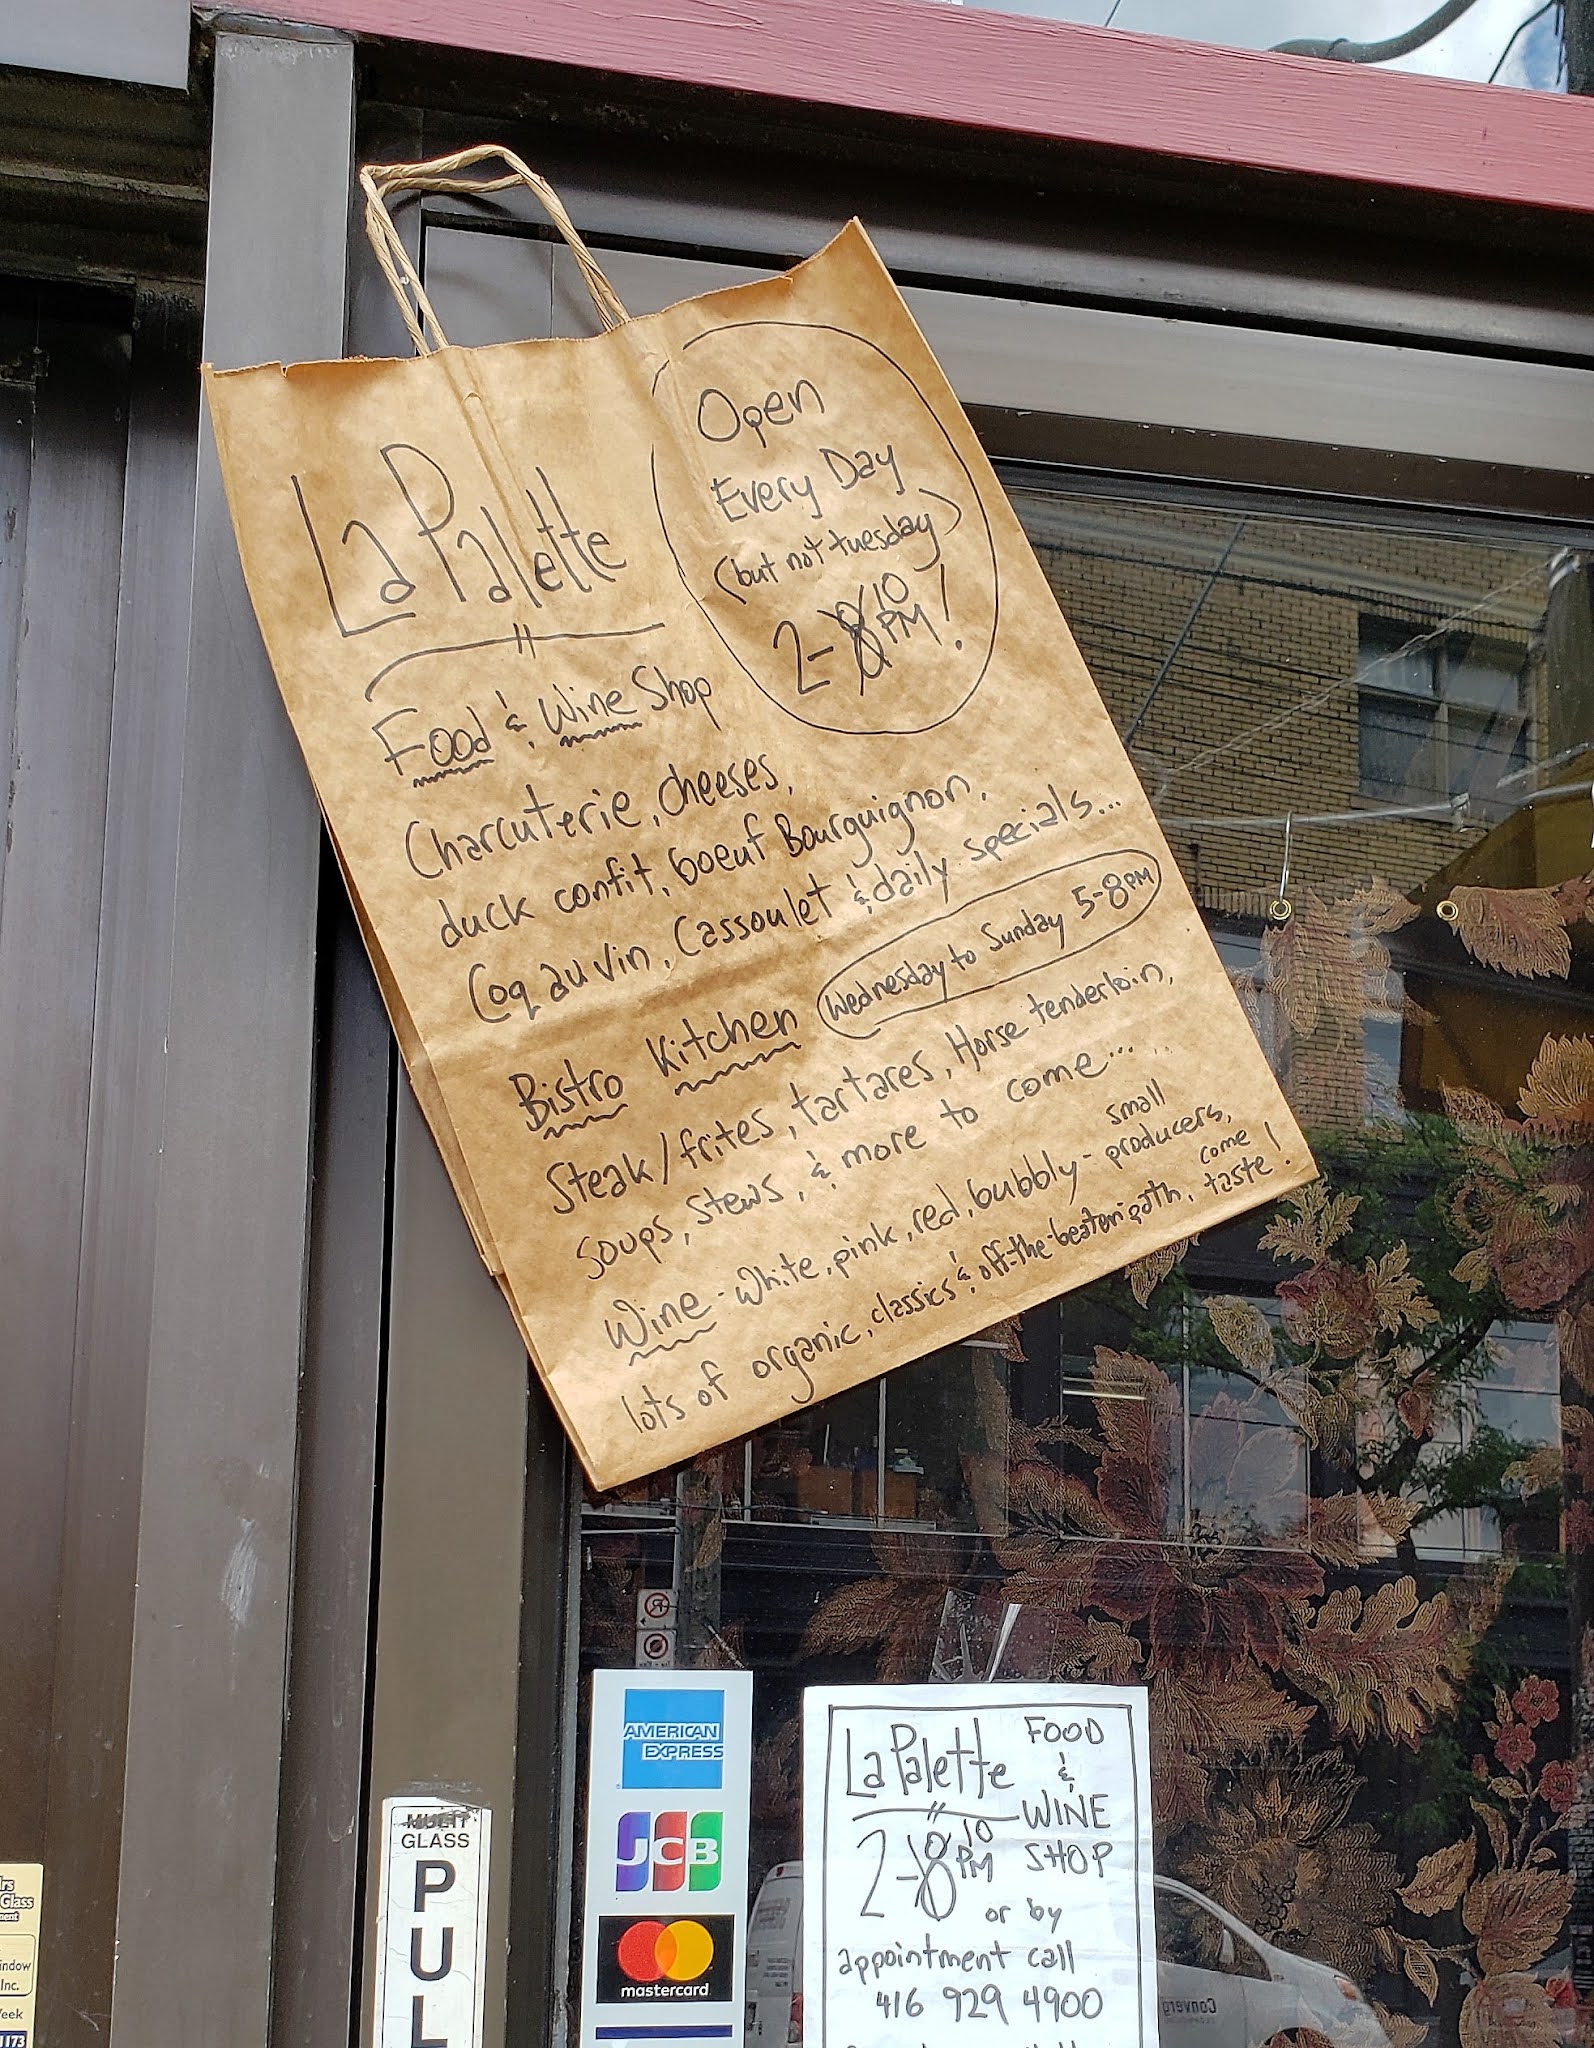 La Palette
Open
Every Day
(but not tuesday)
2-8/10 PM!
Food & Wine Shop
Charcuterie, cheeses,
duck confit, boeuf Bourguignon,
Coq au vin, Cassoulet & daily specials...
Bistro Kitchen
Wednesday to Sunday 5-8PM
Steak/frites, tartares, Horse tenderloin,
Soups, stews, & more to come...
Wine - White, pink, red, bubbly - small producers,
lots of organic, classics & off-the-beaten path, come taste!
AMERICAN
EXPRESS
JCB
mastercard
La Palette
FOOD
&
WINE
SHOP
2-8 10 PM
or by
appointment call
416 929 4900
MULTI
GLASS
PUL
Glass
indow
Inc.
eek
1173